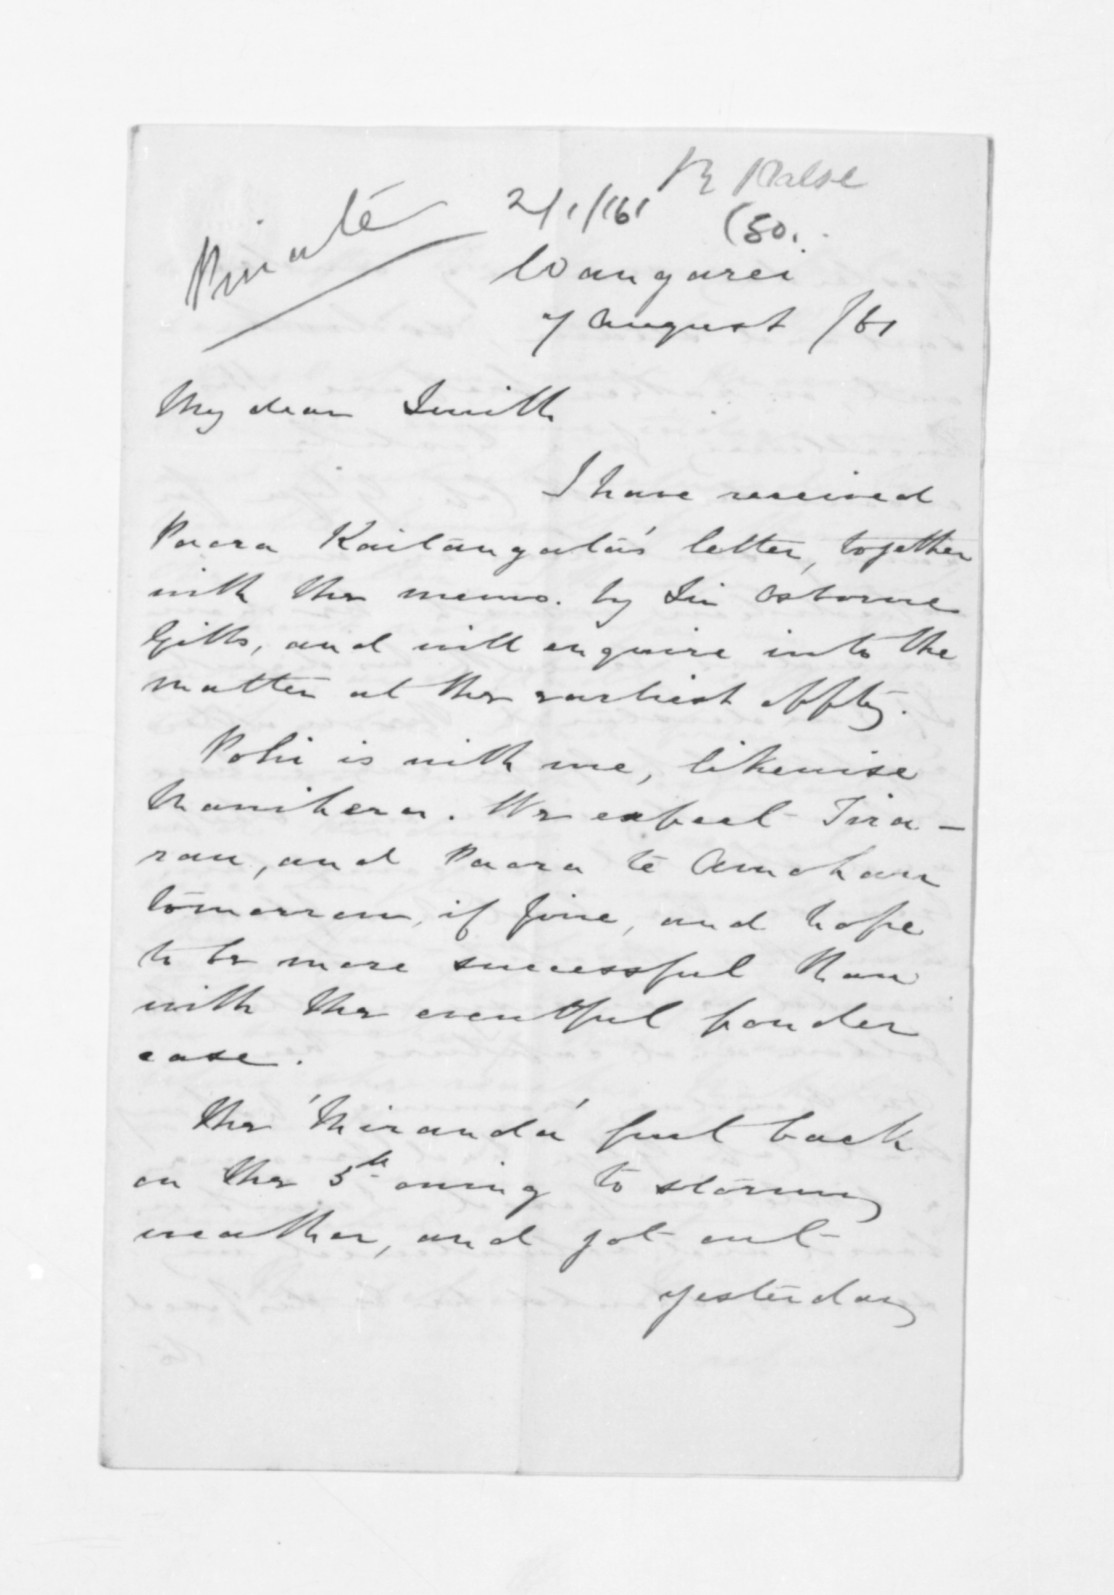 Private
2/1/161
(50.
Wangarei
7 August /61
My dear Smith
I have received
Paora Kaitangata's letter, together
with the memo. by Sir Osborne
Gibbs, and will enquire into the
matter at the earliest oppty.
Pohi is with me, likewise
Manihera. We expect Tira-
rau, and Paora te Amohau
tomorrow, if fine, and hope
to be more successful than
with the eventful pounder
case.
The 'Miranda' put back
on the 5th owing to stormy
weather, and got out
yesterday